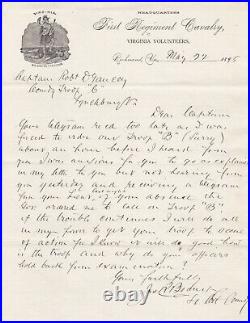 VIRGINIA
HEADQUARTERS
First Regiment Cavalry,
VIRGINIA VOLUNTEERS.
Richmond, Va., May 27 1895
Captain Robt D Yancey
Comdg Troop "C"
Lynchburg Va
Dear Captain
Your telegram recd too late, as I was
forced to order our Troop "B" (Surry)
about an hour before I heard from
you I was anxious for you to go as explained
in my letter to you but not hearing from
you yesterday and receiving a telegram
last night
from your Lieut, of your absence the
Gov ordered me to rely on Troop "B",
if the trouble continues I will do all
in my power to get your Troop to scene
of action for I know it will do good
in the Troop and why do your officers
hold back from examination?
Yours faithfully